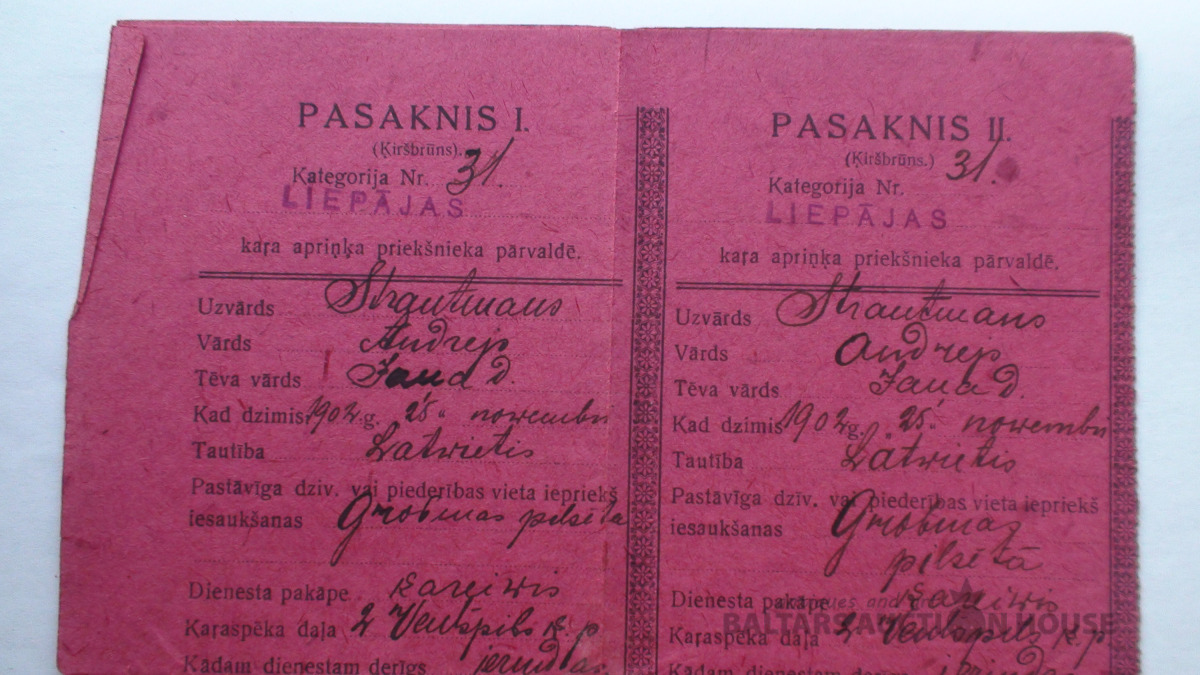 PASAKNIS I.
(Ķiršbrūns).
Kategorija Nr. 31.
LIEPĀJAS
kaŗa apriņķa priekšnieka pārvaldē.
Uzvārds Strautmans
Vārds Andrejs
Tēva vārds Jana d.
Kad dzimis 1902 g. 25. nowembrī
Tautība Latwietis
Pastāvīga dziv. vai piederības vieta iepriekš
iesaukšanas Grobiņas pilsēta
Dienesta pakāpe kareiwis
Kaŗaspēka daļa 2 Ventspils k. p.
Kādam dienestam derīgs ierindas
PASAKNIS II.
(Ķiršbrūns.)
Kategorija Nr. 31.
LIEPĀJAS
kaŗa apriņķa priekšnieka pārvaldē.
Uzvārds Strautmans
Vārds Andrejs
Tēva vārds Jana d.
Kad dzimis 1902 g. 25. nowembrī
Tautība Latwietis
Pastāvīga dziv. vai piederības vieta iepriekš
iesaukšanas Grobiņas
pilsētā
Dienesta pakāpe kareiwis
Kaŗaspēka daļa 2 Ventspils k. p.
Kādam dienestam derīgs
BALTARS AUCTION HOUSE